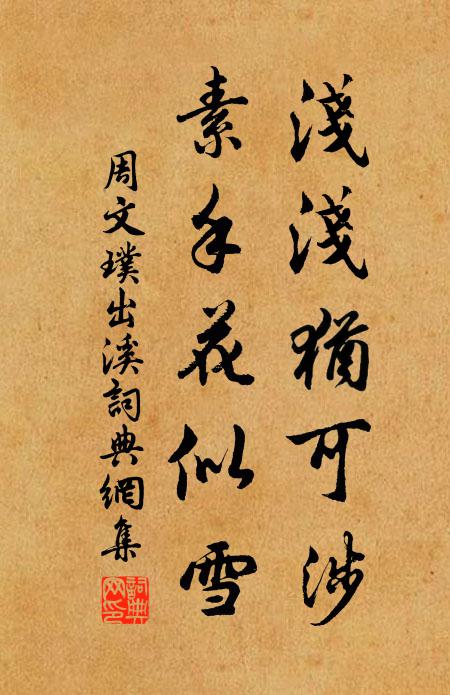 淺淺猶可涉
素手花似雪
周文璞出溪詞典網集
詞典
网印